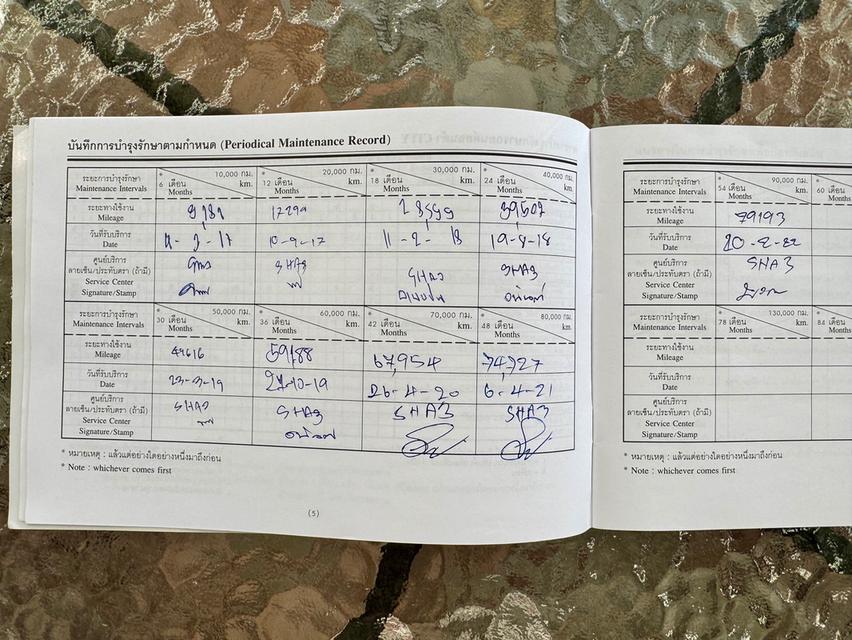 บันทึกการบำรุงรักษาตามกำหนด (Periodical Maintenance Record)
ระยะการบำรุงรักษา * 10,000 กม. * 20,000 กม. * 30,000 กม. * 40,000 กม.
Maintenance Intervals 6 เดือน Months km. 12 เดือน Months km. 18 เดือน Months km. 24 เดือน Months km.
ระยะทางใช้งาน
Mileage 39507
วันที่รับบริการ
Date 10-9-17 11-2-18 19-8-18
ศูนย์บริการ SHA3 SHA3 SHA3
ลายเซ็น/ประทับตรา (ถ้ามี)
Service Center
Signature/Stamp
ระยะการบำรุงรักษา * 50,000 กม. * 60,000 กม. * 70,000 กม. * 80,000 กม.
Maintenance Intervals 30 เดือน Months km. 36 เดือน Months km. 42 เดือน Months km. 48 เดือน Months km.
ระยะทางใช้งาน
Mileage 49616 59188 67,954 74,727
วันที่รับบริการ
Date 23-3-19 27-10-19 26-4-20 6-4-21
ศูนย์บริการ SHA3 SHA3 SHA3 SHA3
ลายเซ็น/ประทับตรา (ถ้ามี)
Service Center
Signature/Stamp
* หมายเหตุ : แล้วแต่อย่างใดอย่างหนึ่งมาถึงก่อน
* Note : whichever comes first
(5)
ระยะการบำรุงรักษา * 90,000 กม. *
Maintenance Intervals 54 เดือน Months km. 60 เดือน Months
ระยะทางใช้งาน
Mileage 79193
วันที่รับบริการ
Date 20-2-22
ศูนย์บริการ SHA3
ลายเซ็น/ประทับตรา (ถ้ามี)
Service Center
Signature/Stamp
ระยะการบำรุงรักษา * 130,000 กม. *
Maintenance Intervals 78 เดือน Months km. 84 เดือน Months
ระยะทางใช้งาน
Mileage
วันที่รับบริการ
Date
ศูนย์บริการ
ลายเซ็น/ประทับตรา (ถ้ามี)
Service Center
Signature/Stamp
* หมายเหตุ : แล้วแต่อย่างใดอย่างหนึ่งมาถึงก่อน
* Note : whichever comes first